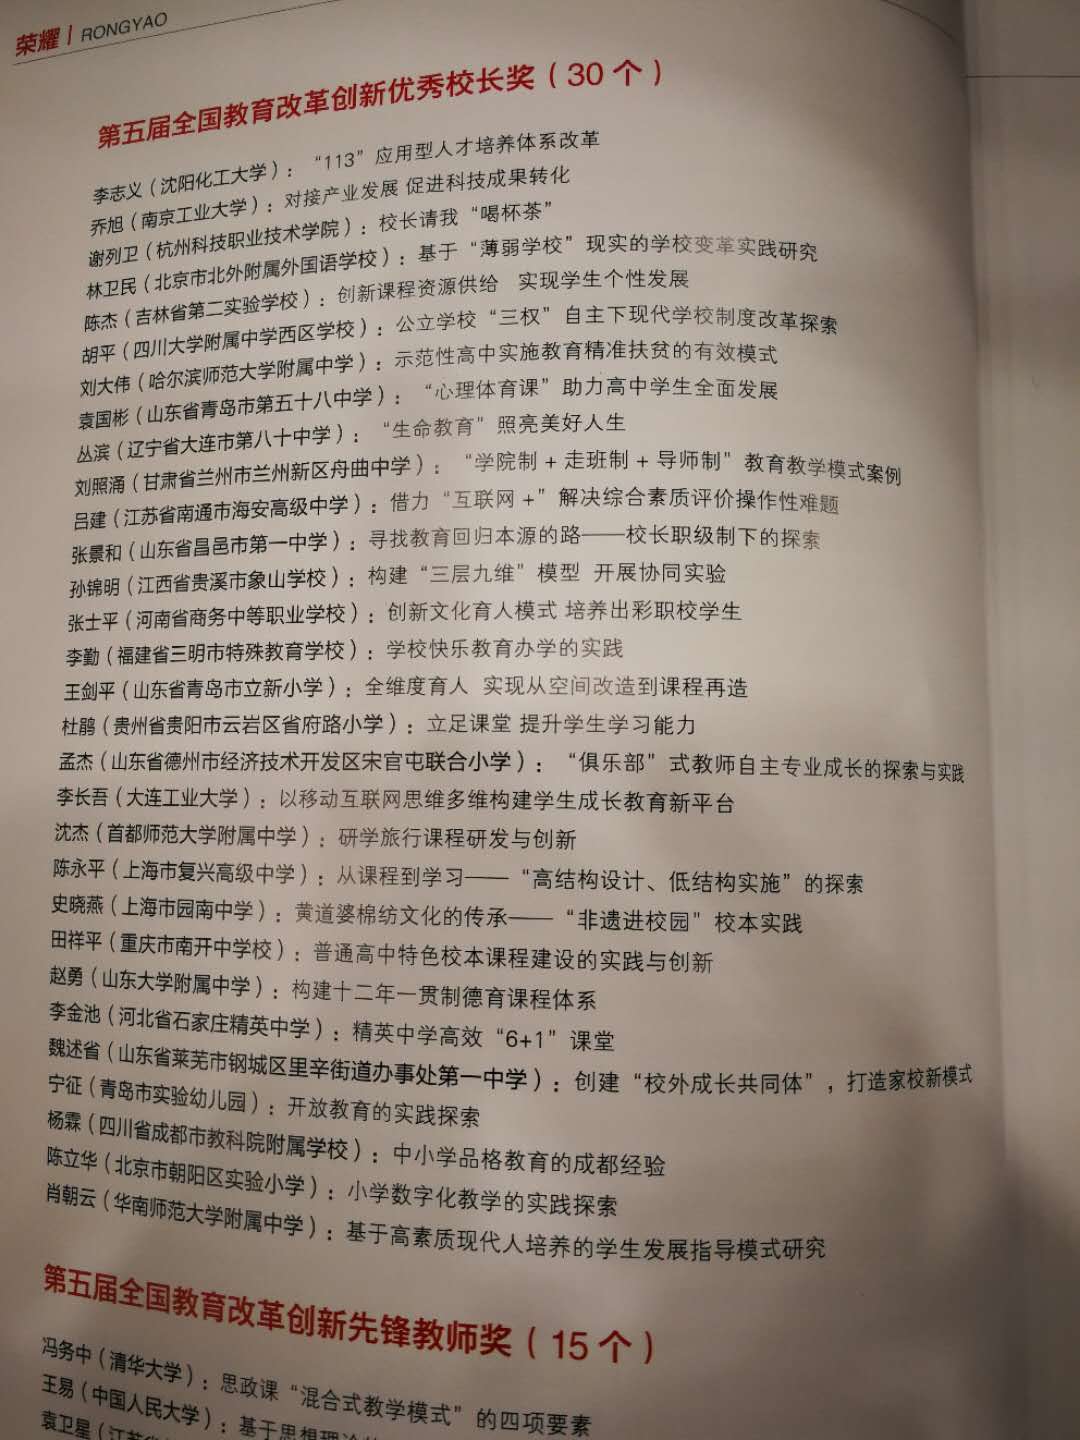 荣耀 | RONGYAO
第五届全国教育改革创新优秀校长奖（30 个）
李志义（沈阳化工大学）：“113”应用型人才培养体系改革
乔旭（南京工业大学）：对接产业发展 促进科技成果转化
谢列卫（杭州科技职业技术学院）：校长请我“喝杯茶”
林卫民（北京市北外附属外国语学校）：基于“薄弱学校”现实的学校变革实践研究
陈杰（吉林省第二实验学校）：创新课程资源供给 实现学生个性发展
胡平（四川大学附属中学西区学校）：公立学校“三权”自主下现代学校制度改革探索
刘大伟（哈尔滨师范大学附属中学）：示范性高中实施教育精准扶贫的有效模式
袁国彬（山东省青岛市第五十八中学）：“心理体育课”助力高中学生全面发展
丛滨（辽宁省大连市第八十中学）：“生命教育”照亮美好人生
刘照涌（甘肃省兰州市兰州新区舟曲中学）：“学院制 + 走班制 + 导师制”教育教学模式案例
吕建（江苏省南通市海安高级中学）：借力“互联网 +”解决综合素质评价操作性难题
张景和（山东省昌邑市第一中学）：寻找教育回归本源的路——校长职级制下的探索
孙锦明（江西省贵溪市象山学校）：构建“三层九维”模型 开展协同实验
张士平（河南省商务中等职业学校）：创新文化育人模式 培养出彩职校学生
李勤（福建省三明市特殊教育学校）：学校快乐教育办学的实践
王剑平（山东省青岛市立新小学）：全维度育人 实现从空间改造到课程再造
杜鹃（贵州省贵阳市云岩区省府路小学）：立足课堂 提升学生学习能力
孟杰（山东省德州市经济技术开发区宋官屯联合小学）：“俱乐部”式教师自主专业成长的探索与实践
李长吾（大连工业大学）：以移动互联网思维多维构建学生成长教育新平台
沈杰（首都师范大学附属中学）：研学旅行课程研发与创新
陈永平（上海市复兴高级中学）：从课程到学习——“高结构设计、低结构实施”的探索
史晓燕（上海市园南中学）：黄道婆棉纺文化的传承——“非遗进校园”校本实践
田祥平（重庆市南开中学校）：普通高中特色校本课程建设的实践与创新
赵勇（山东大学附属中学）：构建十二年一贯制德育课程体系
李金池（河北省石家庄精英中学）：精英中学高效“6+1”课堂
魏述省（山东省莱芜市钢城区里辛街道办事处第一中学）：创建“校外成长共同体”，打造家校新模式
宁征（青岛市实验幼儿园）：开放教育的实践探索
杨霖（四川省成都市教科院附属学校）：中小学品格教育的成都经验
陈立华（北京市朝阳区实验小学）：小学数字化教学的实践探索
肖朝云（华南师范大学附属中学）：基于高素质现代人培养的学生发展指导模式研究
第五届全国教育改革创新先锋教师奖（15 个）
冯务中（清华大学）：思政课“混合式教学模式”的四项要素
王易（中国人民大学）：基于思想理论
袁卫星（江苏省